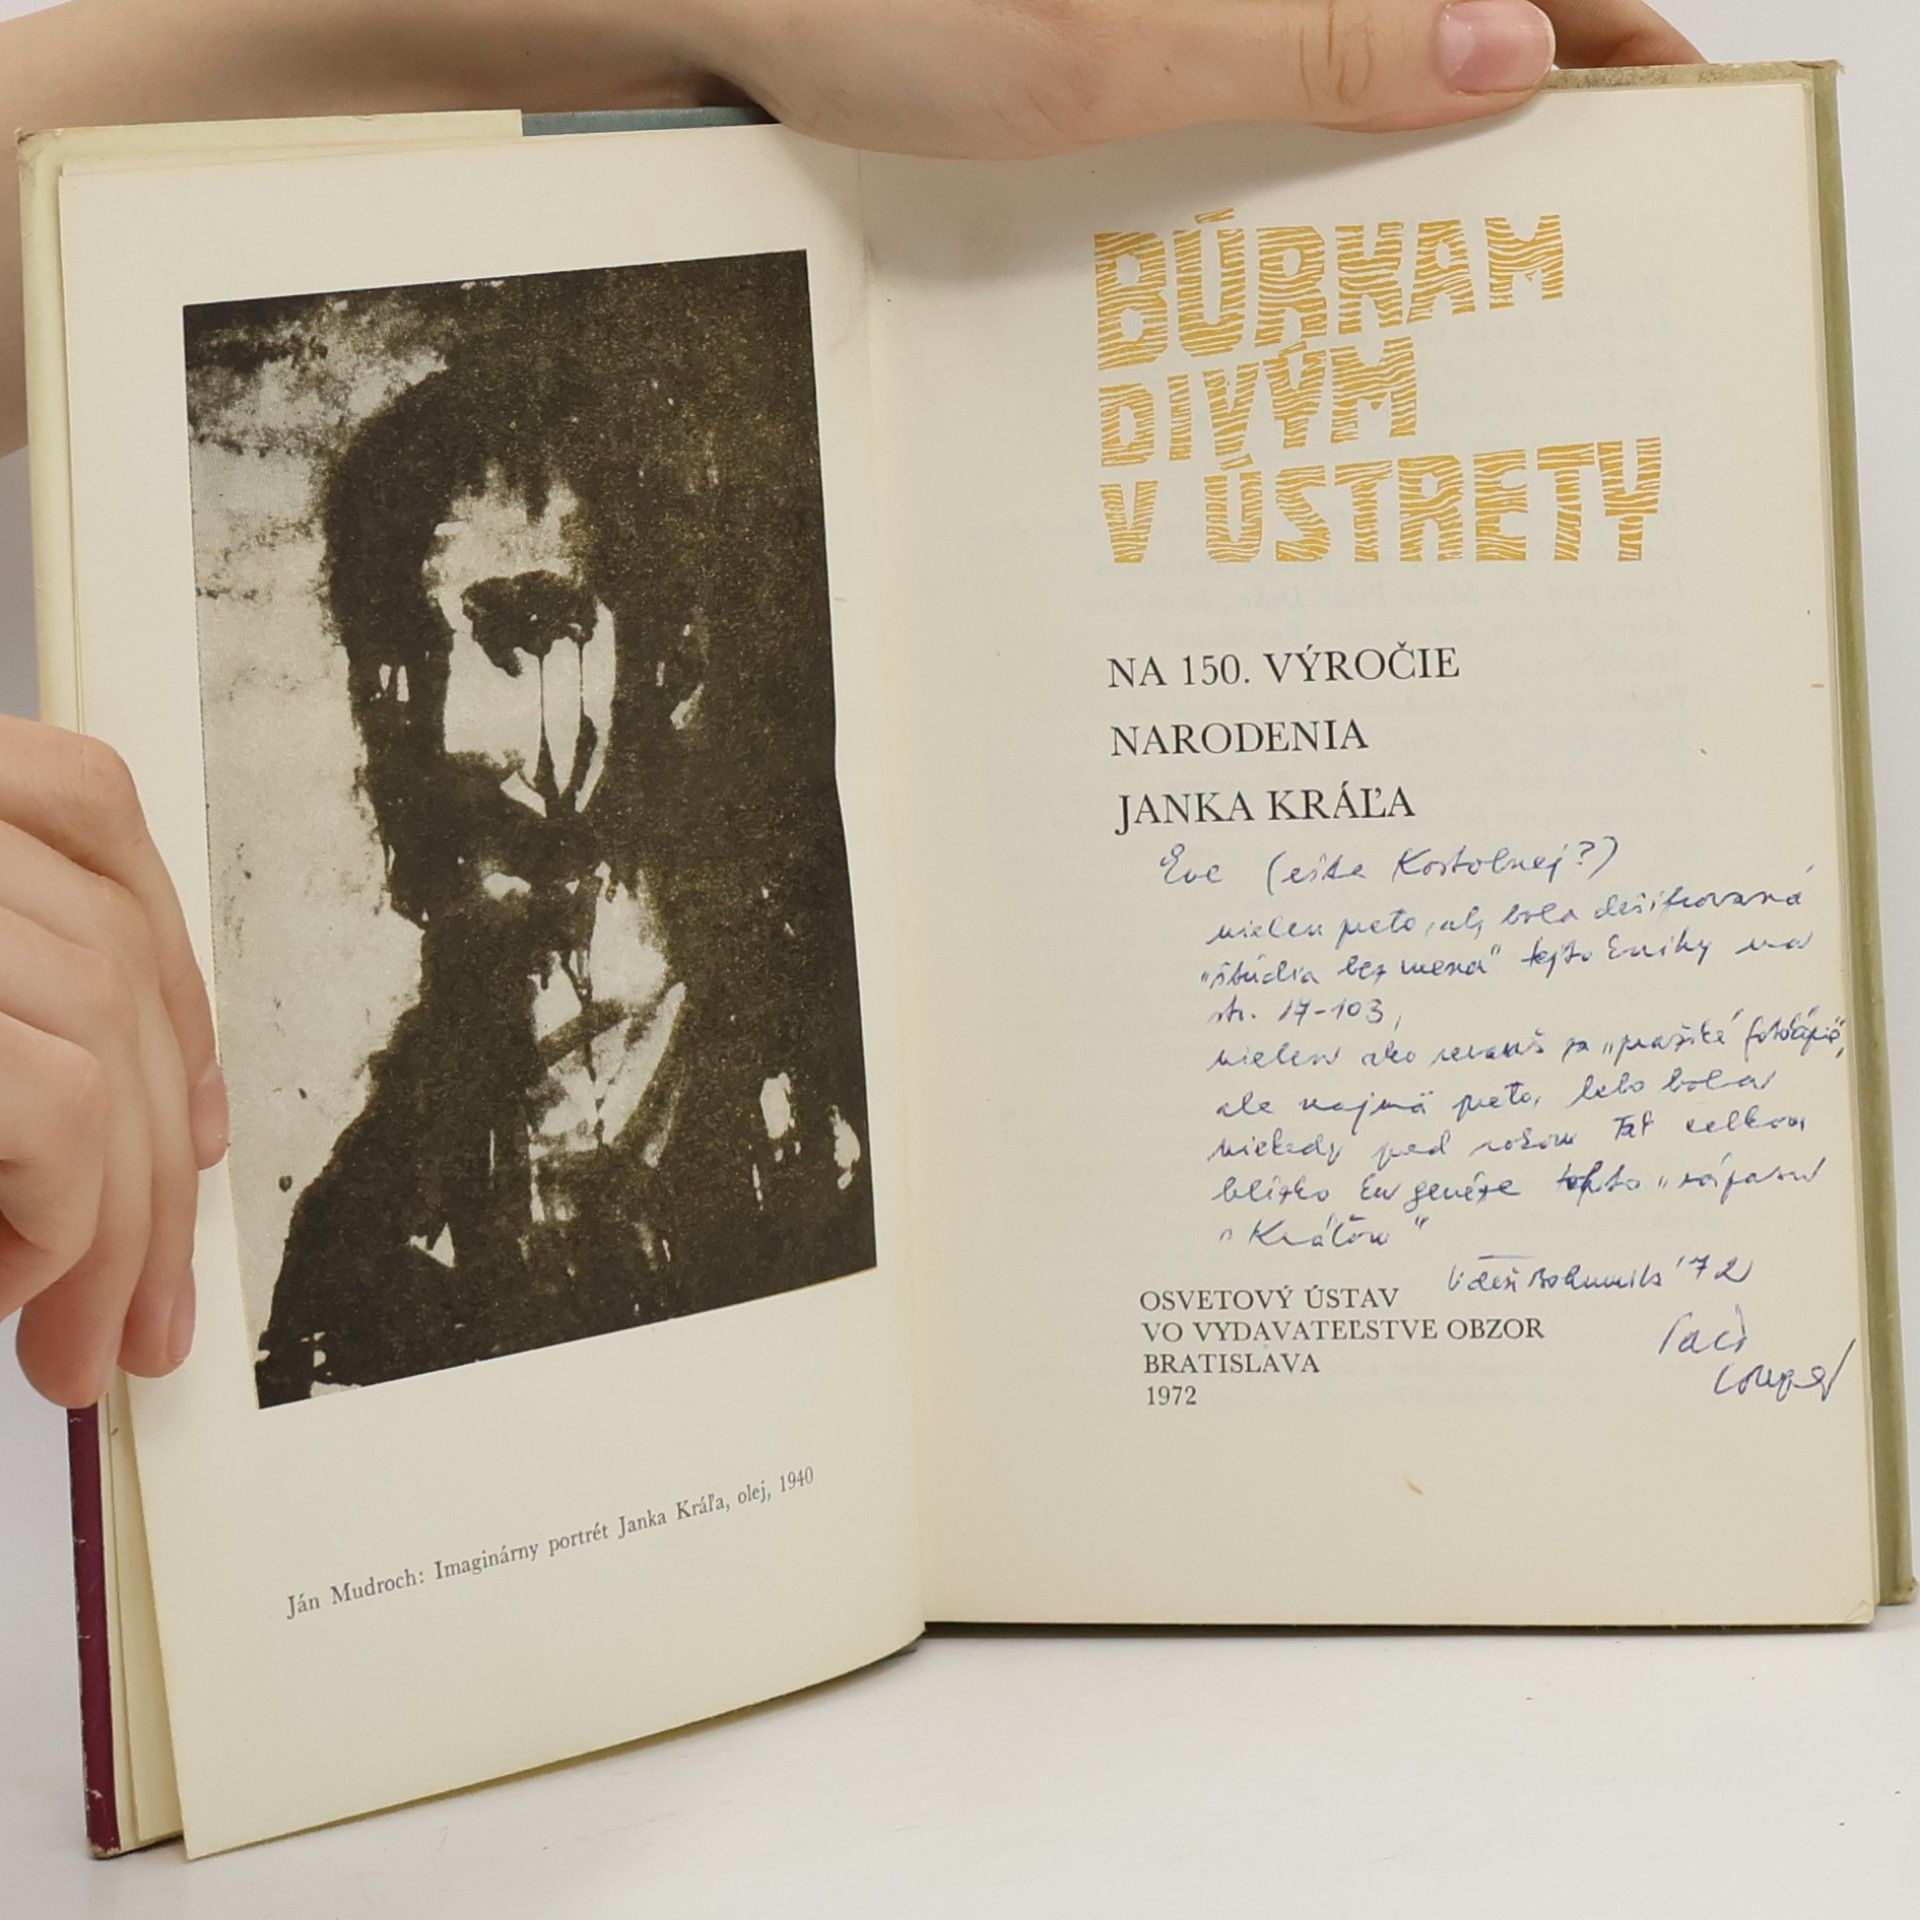 Ján Mudroch: Imaginárny portrét Janka Kráľa, olej, 1940
BÚRKAM
DIVÝM
V ÚSTRETY
NA 150. VÝROČIE
NARODENIA
JANKA KRÁĽA
Eve (ešte Kostolnej?)
nielen preto, ab bola dešifrovaná
„štúdia bez mena" tejto knihy na
str. 17-103,
nielen ako revanš za „pražské fotokópie",
ale najmä preto, lebo bola
niekedy pred rokom tak celkom
blízko genéze tohto „zápasu
s Kráľom"
'72
OSVETOVÝ ÚSTAV
VO VYDAVATEĽSTVE OBZOR
BRATISLAVA
1972